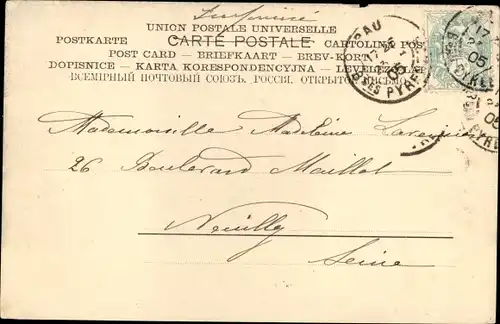 Imprimé
UNION POSTALE UNIVERSELLE
POSTKARTE CARTE POSTALE CARTOLINA POST
POST CARD — BRIEFKAART — BREV-KORT
DOPISNICE — KARTA KORESPONDENCYJNA — LEVELEZ
ВСЕМІРНЫЙ ПОЧТОВЫЙ СОЮЗЪ. РОССІЯ. ОТКРЫТОЕ
PAU
17
05
PYRE
17
05
Mademoiselle Madeleine
26 Boulevard Maillot
Neuilly
Seine